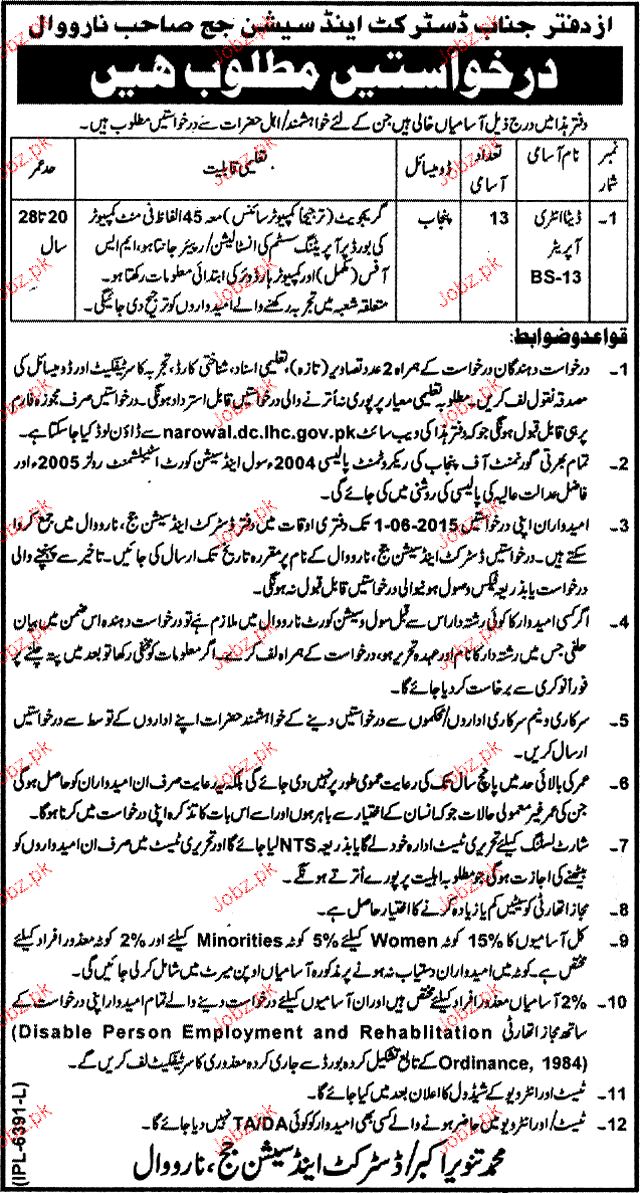 از دفتر جناب ڈسٹرکٹ اینڈ سیشن جج صاحب نارووال
درخواستیں مطلوب ھیں
دفتر ہذا میں درج ذیل آسامیاں خالی ہیں جن کے لئے خواہشمند/اہل حضرات سے درخواستیں مطلوب ہیں۔
نمبر شمار
نام آسامی
تعداد آسامی
ڈومیسائل
تعلیمی قابلیت
حد عمر
1۔
ڈیٹا انٹری آپریٹر BS-13
13
پنجاب
گریجویٹ (ترجیحاً کمپیوٹر سائنس) معہ 45 الفاظ فی منٹ کمپیوٹر
کی بورڈ پر آپریٹنگ سسٹم کی انسٹالیشن/رپیئر جانتا ہو، ایم ایس
آفس (مکمل) اور کمپیوٹر ہارڈویئر کی ابتدائی معلومات رکھتا ہو۔
متعلقہ شعبہ میں تجربہ رکھنے والے امیدواروں کو ترجیح دی جائیگی۔
20 تا 28 سال
قواعد و ضوابط:
1۔ درخواست دہندگان درخواست کے ہمراہ 2 عدد تصاویر (تازہ)، تعلیمی اسناد، شناختی کارڈ، تجربہ کا سرٹیفکیٹ اور ڈومیسائل کی
مصدقہ نقول لف کریں۔ مطلوبہ تعلیمی معیار پر پوری نہ اُترنے والی درخواستیں قابل استرداد ہونگی۔ درخواستیں صرف مجوزہ فارم
پر ہی قابل قبول ہونگی جو کہ دفتر ہذا کی ویب سائٹ narowal.dc.lhc.gov.pk سے ڈاؤن لوڈ کیا جاسکتا ہے۔
2۔ تمام بھرتی گورنمنٹ آف پنجاب کی ریکروٹمنٹ پالیسی 2004ء سول اینڈ سیشن کورٹ اسٹیبلشمنٹ رولز 2005ء اور
فاضل عدالت عالیہ کی پالیسی کی روشنی میں کی جائے گی۔
3۔ امیدواران اپنی درخواستیں 1-06-2015 تک دفتری اوقات میں دفتر ڈسٹرکٹ اینڈ سیشن جج، نارووال میں جمع کروا
سکتے ہیں۔ درخواستیں ڈسٹرکٹ اینڈ سیشن جج، نارووال کے نام پر مقررہ تاریخ تک ارسال کی جائیں۔ تاخیر سے پہنچنے والی
درخواست یا بذریعہ فیکس وصول ہونیوالی درخواستیں قابل قبول نہ ہونگی۔
4۔ اگر کسی امیدوار کا کوئی رشتہ دار اس سے قبل سول و سیشن کورٹ نارووال میں ملازم ہے تو درخواست دہندہ اس ضمن میں بیان
حلفی جس میں رشتہ دار کا نام اور عہدہ تحریر ہو، درخواست کے ہمراہ لف کرے۔ اگر معلومات کو مخفی رکھا تو بعد میں پتہ چلنے پر
فوراً نوکری سے برخاست کر دیا جائے گا۔
5۔ سرکاری و نیم سرکاری اداروں/محکموں سے درخواستیں دینے کے خواہشمند حضرات اپنے اداروں کے توسط سے درخواستیں
ارسال کریں۔
6۔ عمر کی بالائی حد میں پانچ سال تک کی رعایت عمومی طور پر نہیں دی جائے گی بلکہ یہ رعایت صرف ان امیدواران کو حاصل ہوگی
جن کی عمر غیر معمولی حالات جو کہ انسان کے اختیار سے باہر ہوں اور اسے اس بات کا تذکرہ اپنی درخواست میں کرنا ہوگا۔
7۔ شارٹ لسٹنگ کیلئے تحریری ٹیسٹ ادارہ خود لے گا یا بذریعہ NTS لیا جائے گا اور تحریری ٹیسٹ میں صرف ان امیدواروں کو
بیٹھنے کی اجازت ہوگی جو مطلوبہ اہلیت پر پورے اُترتے ہونگے۔
8۔ مجاز اتھارٹی کو سیٹیں کم یا زیادہ کرنے کا اختیار حاصل ہے۔
9۔ کل آسامیوں کا 15% کوٹہ Women کیلئے 5% کوٹہ Minorities کیلئے اور 2% کوٹہ معذور افراد کیلئے
مختص ہے۔ کوٹہ میں امیدواران دستیاب نہ ہونے پر مذکورہ آسامیاں اوپن میرٹ میں شامل کر لی جائیں گی۔
10۔ 2% آسامیاں معذور افراد کیلئے مختص ہیں اور ان آسامیوں کیلئے درخواست دینے والے تمام امیدوار اپنی درخواست کے
ساتھ مجاز اتھارٹی (Disable Person Employment and Rehablitation
Ordinance, 1984) کے تابع تشکیل کردہ بورڈ سے جاری کردہ معذوری کا سرٹیفکیٹ لف کریں گے۔
11۔ ٹیسٹ اور انٹرویو کے شیڈول کا اعلان بعد میں کیا جائے گا۔
12۔ ٹیسٹ/اور انٹرویو میں حاضر ہونے والے کسی بھی امیدوار کو کوئی TA/DA نہیں دیا جائے گا۔
محمد تنویر اکبر/ڈسٹرکٹ اینڈ سیشن جج، نارووال
(IPL-6391-L)
Jobz.pk